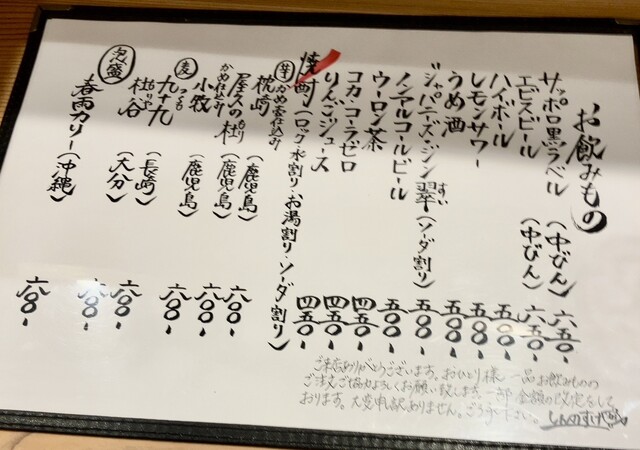 お飲みもの
サッポロ黒ラベル(中びん) 六五〇
エビスビール(中びん) 六五〇
ハイボール 五〇〇
レモンサワー 五〇〇
うめ酒 五〇〇
ジャパニーズ・ジン翠(ソーダ割り) 五〇〇
すい
ノンアルコールビール 五〇〇
ウーロン茶 四五〇
コカ・コーラゼロ 四五〇
りんごジュース 四五〇
焼酎(ロック・水割り・お湯割り・ソーダ割り)
芋
かめ壺仕込み
枕崎(鹿児島) 六〇〇
屋久の杜(鹿児島) 六〇〇
もり
かめ仕込み
小牧(鹿児島) 六〇〇
麦
九十九(長崎) 六〇〇
つくも
杜谷(大分) 六〇〇
もりや
泡盛
春雨カリー(沖縄) 六〇〇
ご来店ありがとうございます。おひとり様 一品お飲みものの
ご注文ご協力よろしくお願い致します。一部 金額の改定をして
おります。大変申訳ありません。ご了承下さい。しんのすけ